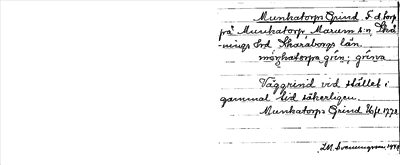 Munkatorps Grind, F. d. torp
på Munkatorp, Marum s:n, Skå-
-nings hrd Skaraborgs län.
mónkatorpa grin; grina
Väggrind vid stället i
gammal tid säkerligen.
Munkatorps Grind Hfl. 1778